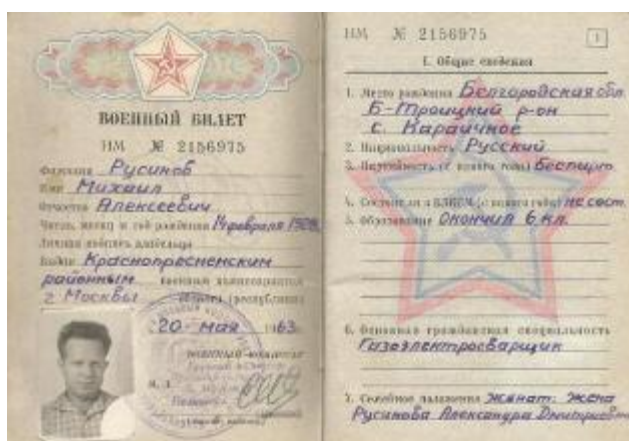 ВОЕННЫЙ БИЛЕТ
НМ № 2156975
Фамилия Русинов
Имя Михаил
Отчество Алексеевич
Число, месяц и год рождения 14 февраля
Личная подпись владельца
Выдан Краснопресненским
районным военным комиссариатом
г Москвы области (республики)
20 мая 1963
ВОЕННЫЙ КОМИССАР
НМ № 2156975
1
I. Общие сведения
1. Место рождения Белгородская обл.
Б-Троицкий р-он
с.
2. Национальность Русский
3. Партийность (с какого года) беспарт
4. Состоит ли в ВЛКСМ (с какого года) не сост.
5. Образование Окончил 6 кл.
6. Основная гражданская специальность
Газоэлектросварщик
7. Семейное положение женат: жена
Русинова Александра Дмитриевна